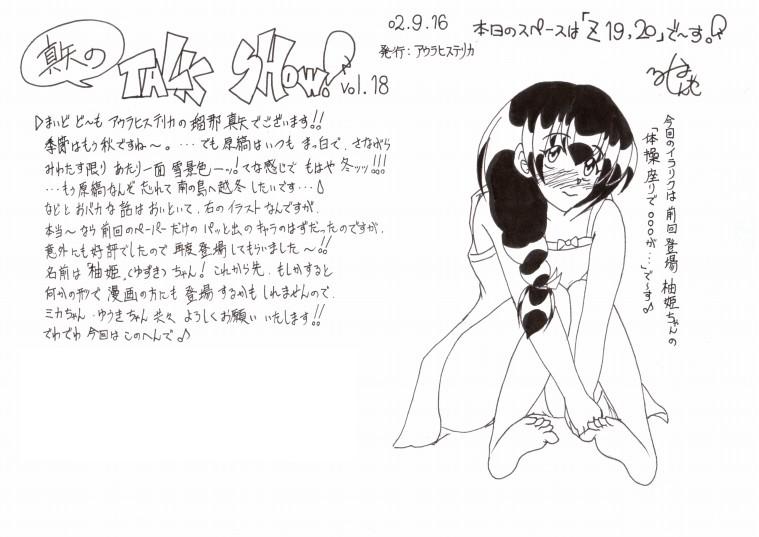 真矢の
TALK SHOW! vol.18
02.9.16
発行:アウラヒステリカ
本日のスペースは「Z19,20」で〜す。!
▷まいど ど〜も アウラヒステリカの 瑠那 真矢でございます!!
季節はもう秋ですね〜。…でも原稿はいつも まっ白で、さながら
みわたす限り あたり一面 雪景色ーッ!てな感じで もはや 冬ッッ!!!
…もう原稿なんぞ だれて 南の島へ越冬 したいです…♪
などと おバカな 話は おいといて、右の イラスト なんですが、
本当〜なら 前回の ペーパー だけの パッと出の キャラのはず だったのですが、
意外にも 好評でしたので 再度 登場 してもらいました〜!!
名前は「柚姫(ゆずき)ちゃん! これから先、もしかすると
何かの形で 漫画の方にも 登場 するかも しれませんので、
ミカちゃん・ゆうきちゃん 共々 よろしく お願い いたします!!
でわでわ 今回は このへんで♪
今回のイラリクは 前回 登場 柚姫ちゃんの
「体操座りで○○○が…」で〜す♪